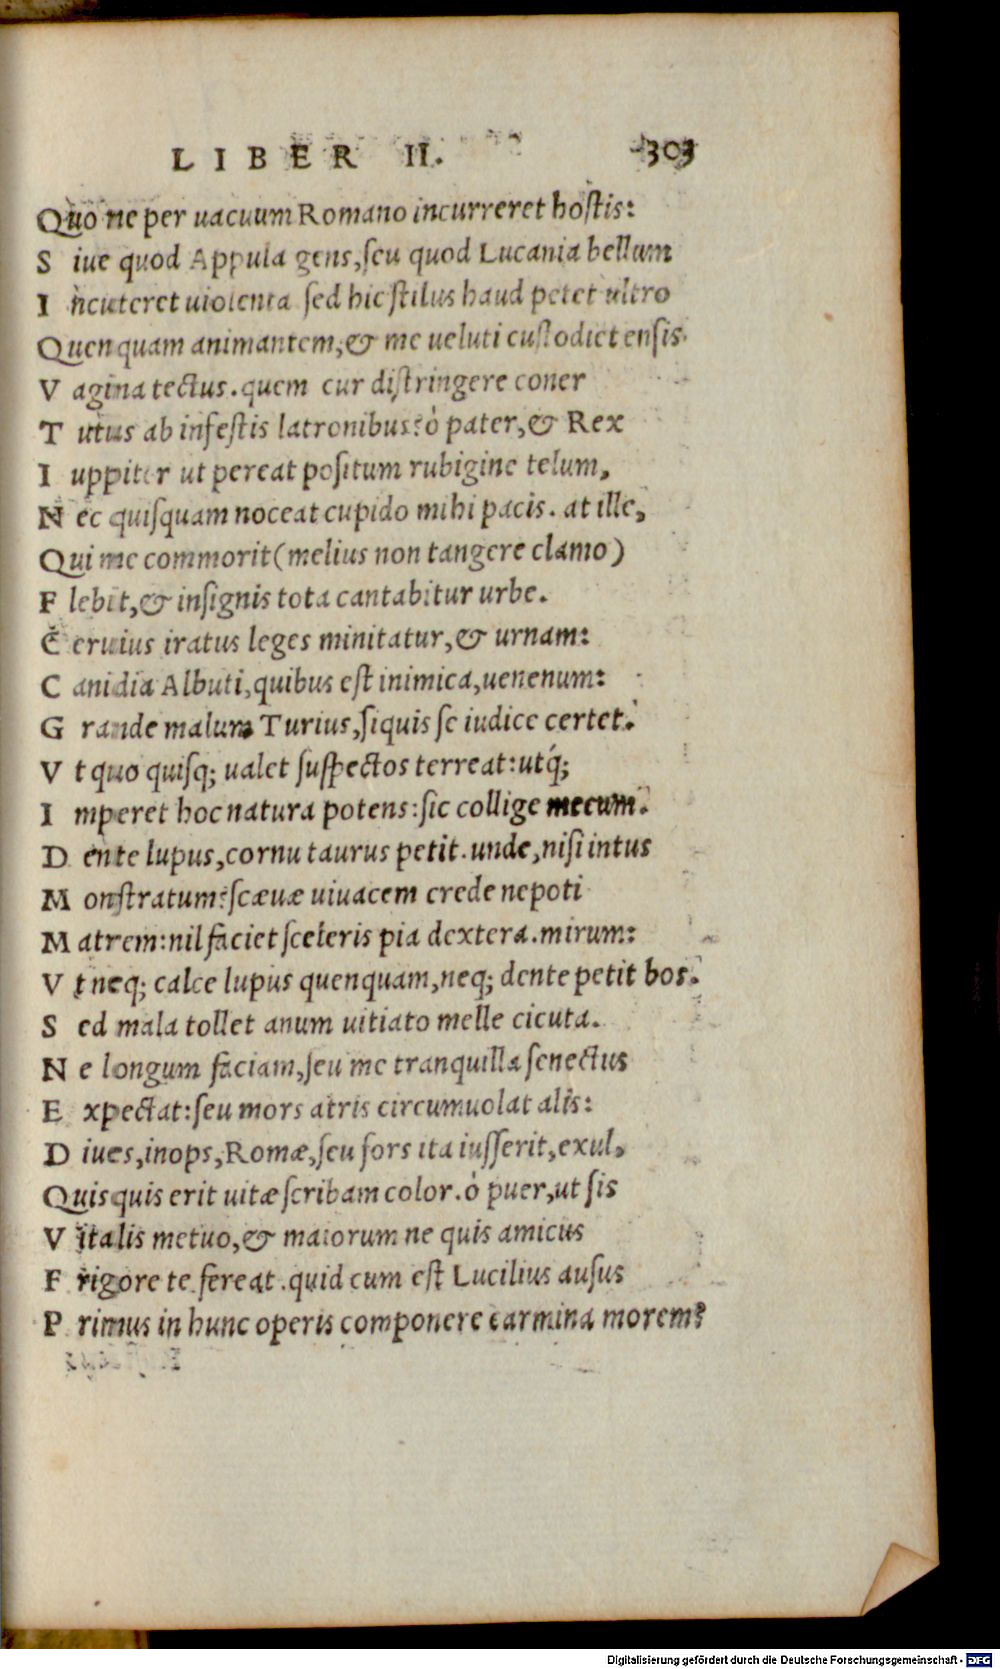 LIBER II. 303
Quo ne per uacuum Romano incurreret hostis:
S iue quod Appula gens, seu quod Lucania bellum
I ncuteret uiolenta sed hic stilus haud petet ultro
Quenquam animantem, & me ueluti custodiet ensis
V agina tectus. quem cur distringere coner
T utus ab infestis latronibus? ò pater, & Rex
I uppiter ut pereat positum rubigine telum,
N ec quisquam noceat cupido mihi pacis. at ille,
Qui me commorit (melius non tangere clamo)
F lebit, & insignis tota cantabitur urbe.
C eruius iratus leges minitatur, & urnam:
C anidia Albuti, quibus est inimica, uenenum:
G rande malum Turius, siquis se iudice certet.
V t quo quisq; ualet suspectos terreat: utq́;
I mperet hoc natura potens: sic collige mecum.
D ente lupus, cornu taurus petit. unde, nisi intus
M onstratum? scæuæ uiuacem crede nepoti
M atrem: nil faciet sceleris pia dextera. mirum:
V t neq; calce lupus quenquam, neq; dente petit bos.
S ed mala tollet anum uitiato melle cicuta.
N e longum faciam, seu me tranquilla senectus
E xpectat: seu mors atris circumuolat alis:
D iues, inops, Romæ, seu fors ita iusserit, exul,
Quisquis erit uitæ scribam color. ò puer, ut sis
V italis metuo, & maiorum ne quis amicus
F rigore te fereat. quid cum est Lucilius ausus
P rimus in hunc operis componere carmina morem?
Digitalisierung gefördert durch die Deutsche Forschungsgemeinschaft - DFG